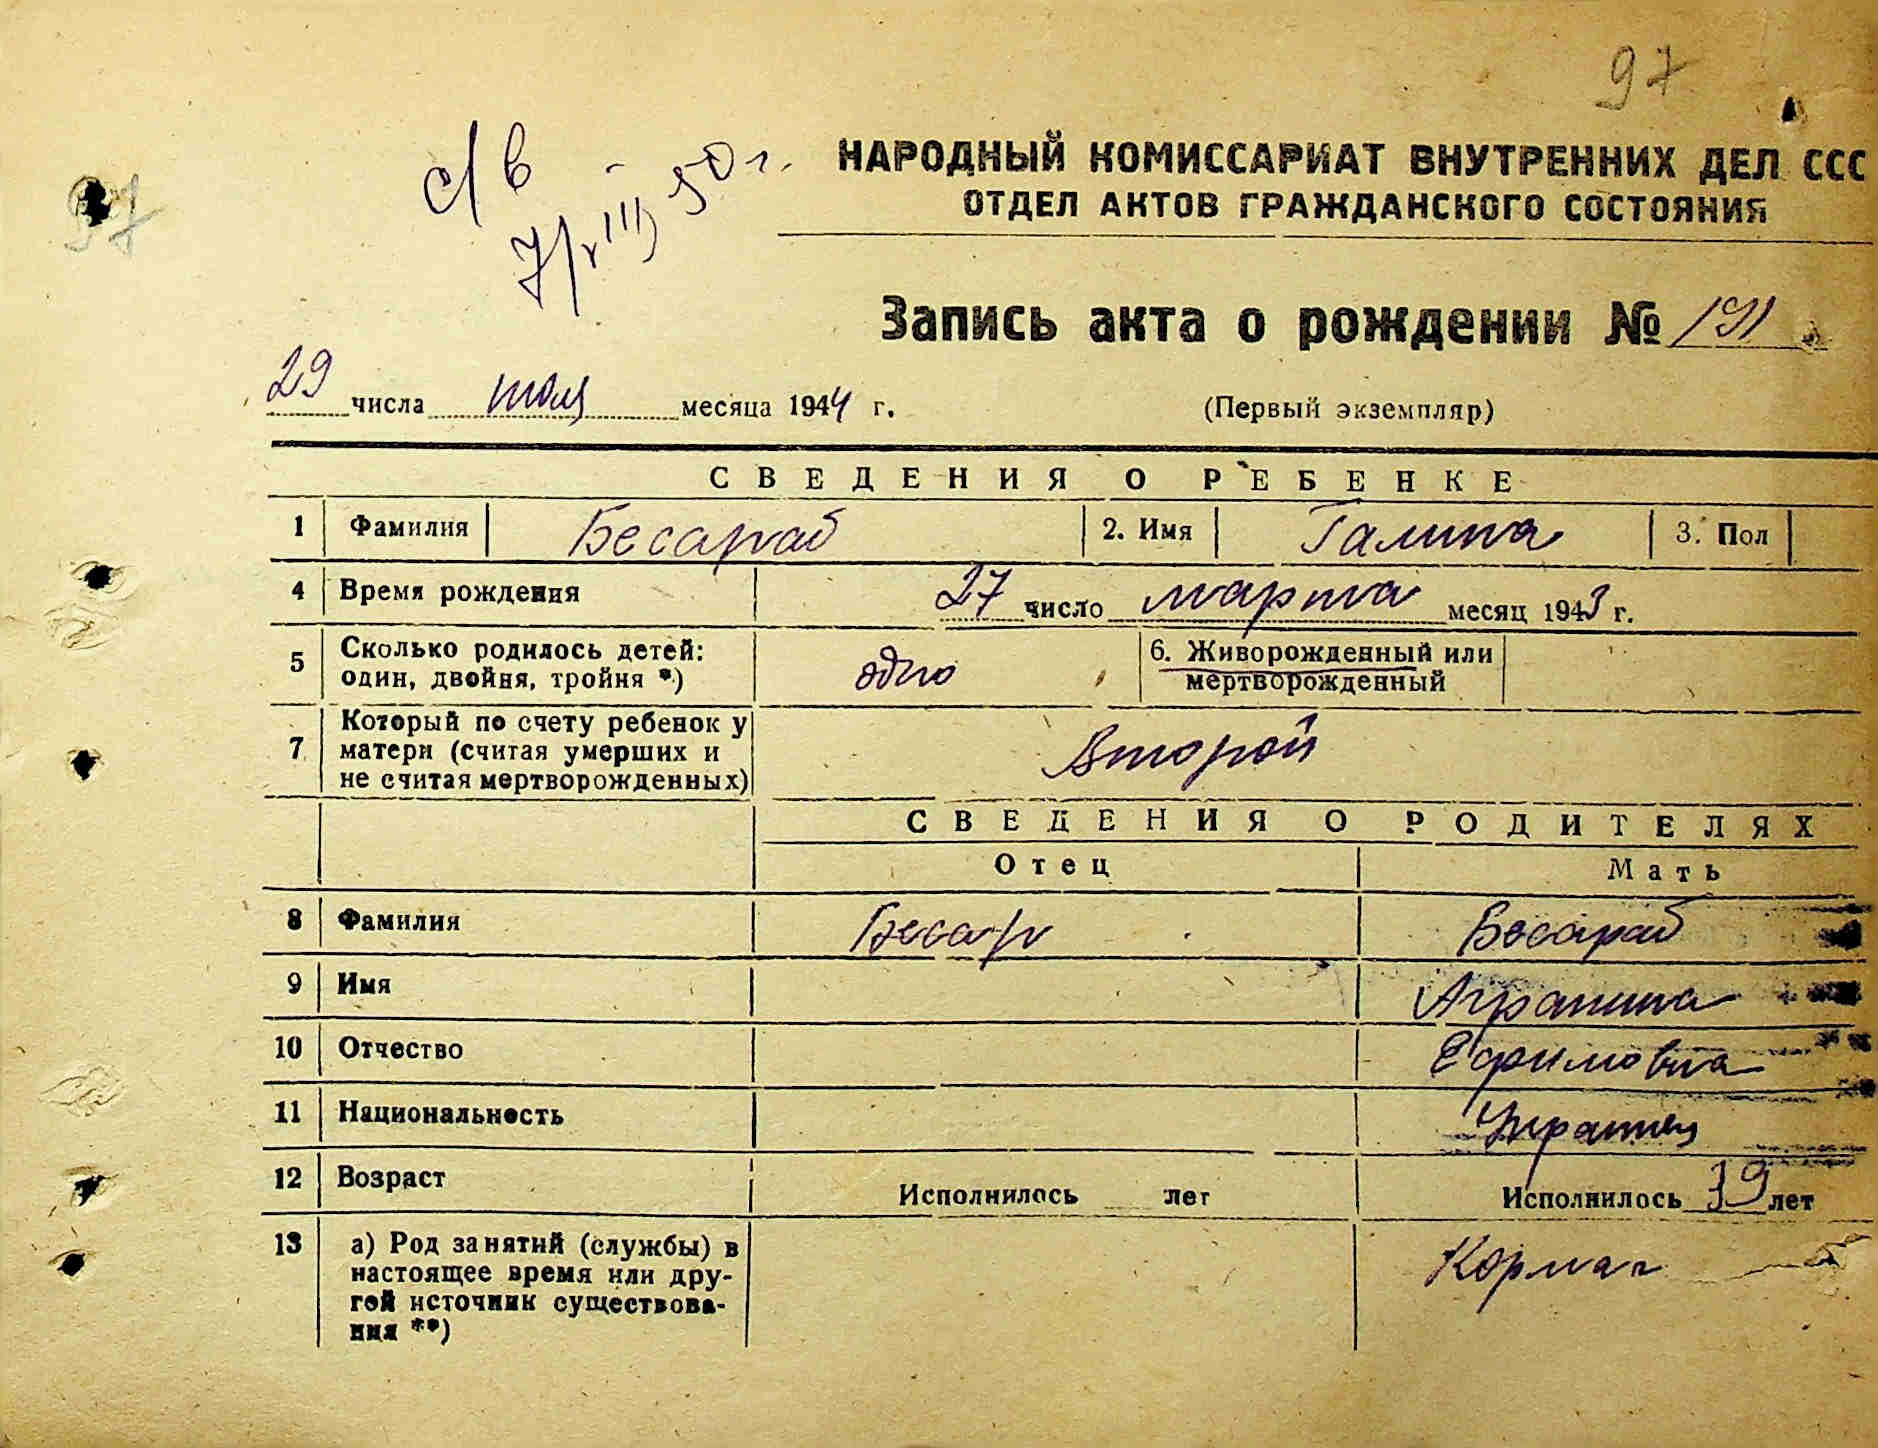 97
97
с/в
7/VIII 50 г.
НАРОДНЫЙ КОМИССАРИАТ ВНУТРЕННИХ ДЕЛ ССС
ОТДЕЛ АКТОВ ГРАЖДАНСКОГО СОСТОЯНИЯ
Запись акта о рождении № 191
29 числа июля месяца 1944 г. (Первый экземпляр)
СВЕДЕНИЯ О РЕБЕНКЕ
1 Фамилия Бесараб 2. Имя Галина 3. Пол
4 Время рождения 27 число марта месяц 1943 г.
5 Сколько родилось детей: один, двойня, тройня *) одно 6. Живорожденный или мертворожденный
7 Который по счету ребенок у матери (считая умерших и не считая мертворожденных) Второй
СВЕДЕНИЯ О РОДИТЕЛЯХ
Отец Мать
8 Фамилия Бесар Бесараб
9 Имя Аграпина
10 Отчество Ефимовна
11 Национальность
12 Возраст Исполнилось лет Исполнилось лет
13 а) Род занятий (службы) в
настоящее время или дру-
гой источник существова-
ния **)